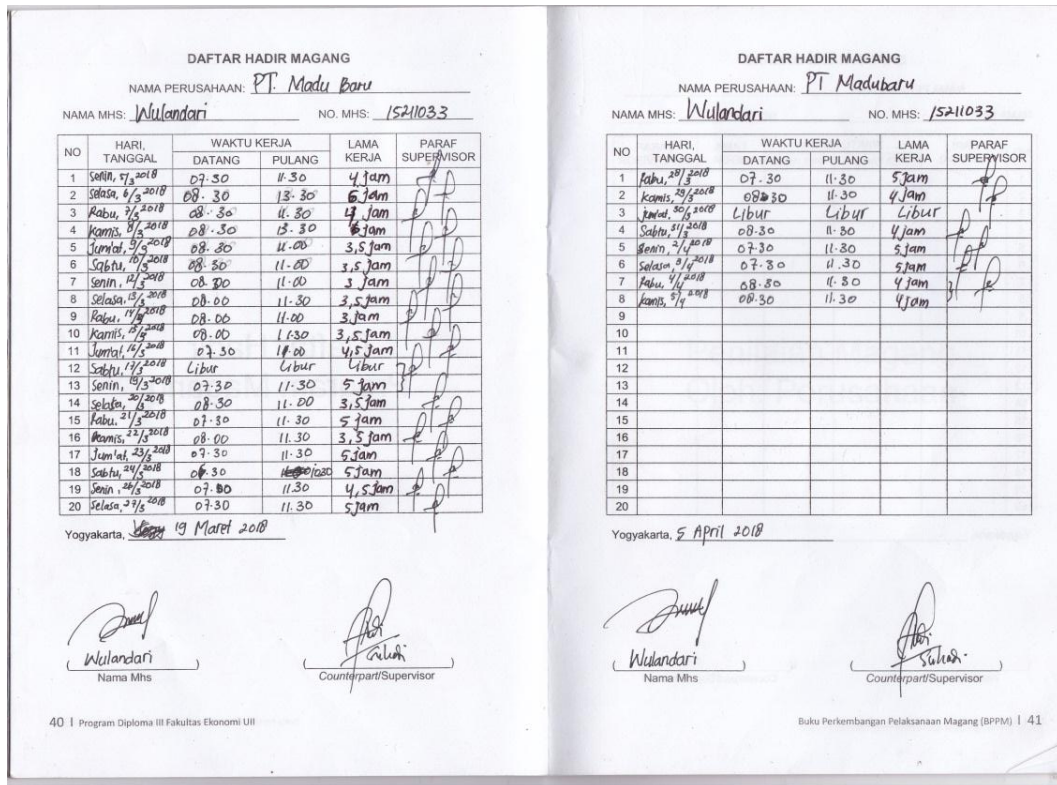 DAFTAR HADIR MAGANG
NAMA PERUSAHAAN: PT. Madu Baru
NAMA MHS: Wulandari NO. MHS: 15211033
NO HARI, TANGGAL WAKTU KERJA DATANG PULANG LAMA KERJA PARAF SUPERVISOR
1 Senin, 5/3 2018 07.30 11.30 4 jam
2 Selasa, 6/3 2018 08.30 13.30 5 jam
3 Rabu, 7/3 2018 08.30 11.30 jam
4 Kamis, 8/3 2018 08.30 13.30 jam
5 Jum'at, 9/3 2018 08.30 11.00 3,5 jam
6 Sabtu, 10/3 2018 08.30 11.00 3,5 jam
7 Senin, 12/3 2018 08.00 11.00 3 jam
8 Selasa, 13/3 2018 08.00 11.30 3,5 jam
9 Rabu, 14/3 2018 08.00 11.00 3 jam
10 Kamis, 15/3 2018 08.00 11.30 3,5 jam
11 Jum'at, 16/3 2018 07.30 11.00 4,5 jam
12 Sabtu, 17/3 2018 Libur Libur Libur
13 Senin, 19/3 2018 07.30 11.30 5 jam
14 Selasa, 20/3 2018 08.30 11.00 3,5 jam
15 Rabu, 21/3 2018 07.30 11.30 5 jam
16 Kamis, 22/3 2018 08.00 11.30 3,5 jam
17 Jum'at, 23/3 2018 07.30 11.30 5 jam
18 Sabtu, 24/3 2018 1030 5 jam
19 Senin, 26/3 2018 11.30 4,5 jam
20 Selasa, 27/3 2018 07.30 11.30 5 jam
Yogyakarta, 19 Maret 2018
Wulandari
Suhadi
Nama Mhs
Counterpart/Supervisor
40 | Program Diploma III Fakultas Ekonomi UII
DAFTAR HADIR MAGANG
NAMA PERUSAHAAN: PT Madubaru
NAMA MHS: Wulandari NO. MHS: 15211033
NO HARI, TANGGAL WAKTU KERJA DATANG PULANG LAMA KERJA PARAF SUPERVISOR
1 Rabu, 28/3 2018 07.30 11.30 5 jam
2 Kamis, 29/3 2018 08.30 11.30 4 jam
3 Jum'at, 30/3 2018 Libur Libur Libur
4 Sabtu, 31/3 2018 08.30 11.30 4 jam
5 Senin, 2/4 2018 07.30 11.30 5 jam
6 Selasa, 3/4 2018 07.30 11.30 5 jam
7 Rabu, 4/4 2018 08.30 11.30 4 jam
8 Kamis, 5/4 2018 08.30 11.30 4 jam
9
10
11
12
13
14
15
16
17
18
19
20
Yogyakarta, 5 April 2018
Wulandari
Suhadi
Nama Mhs
Counterpart/Supervisor
Buku Perkembangan Pelaksanaan Magang (BPPM) | 41